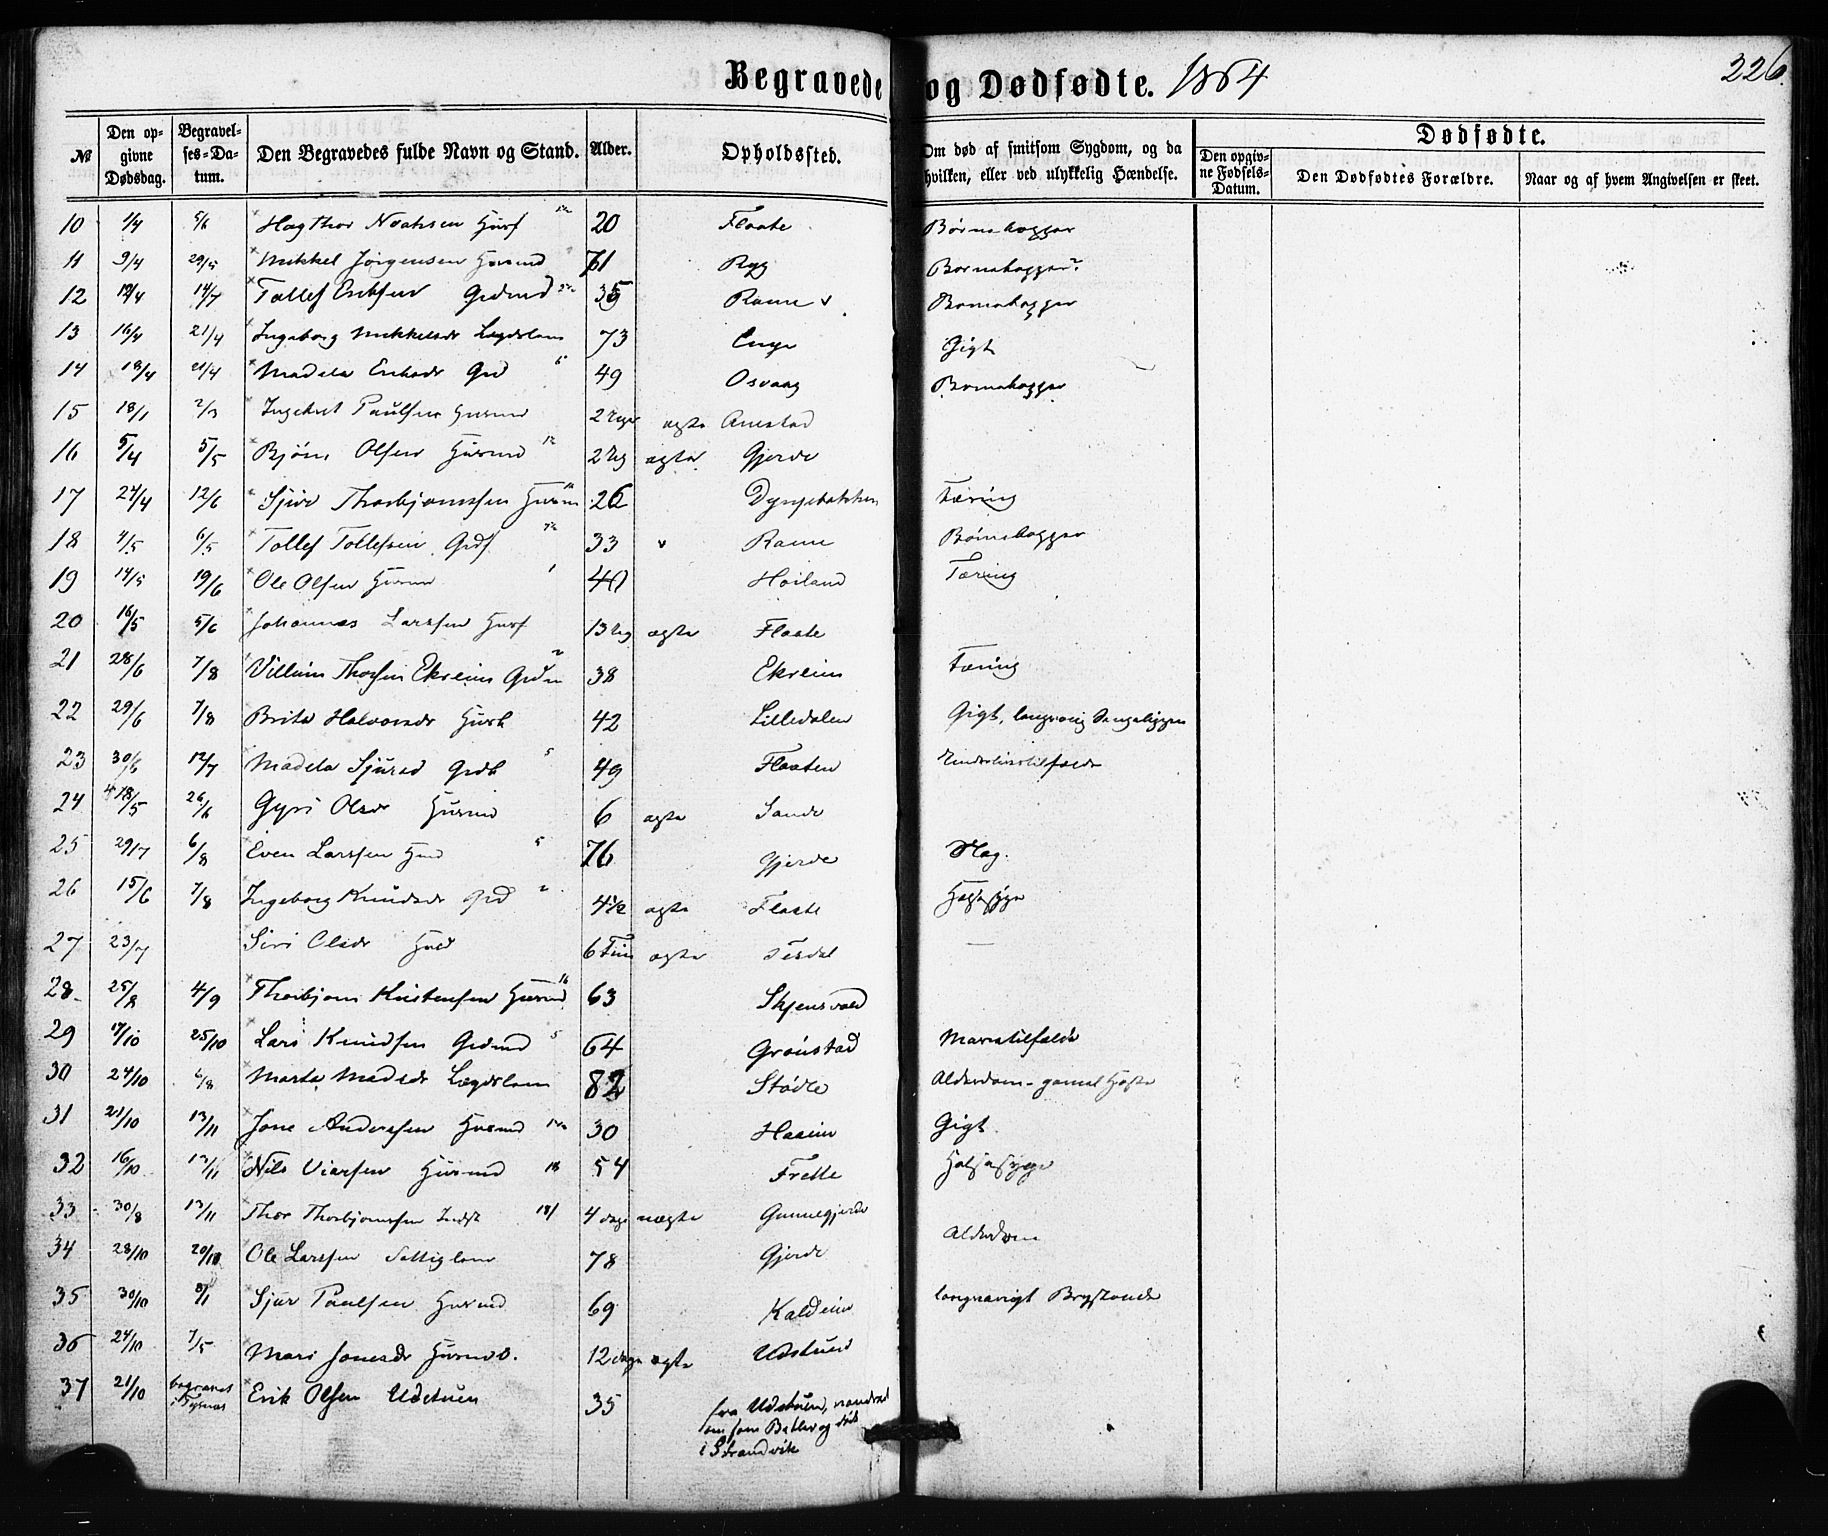 Begravede og Dødfødte. 1864 226.
№ Den opgivne Dødsdag. Begravelses-Datum. Den Begravedes fulde Navn og Stand. Alder. Opholdssted. Om død af smitsom Sygdom, og da hvilken, eller ved ulykkelig Hændelse. Dødfødte. Den opgivne Fødsels-Datum. Den Dødfødtes Forældre. Naar og af hvem Angivelsen er skeet.
10 1/4 5/6 Noahsen Husf 20 Flaate Børnekopper
11 9/4 29/5 Mikkel Jørgensen Husmd 71 Ryg Børnekopper?
12 12/4 14/7 Tollef Eriksen Grdmd 35 Rame v Børnekopper
13 16/4 21/4 Ingeborg Mikkelsdr Lægdslem 73 Enge Gigt
14 19/4 21/4 Madela Eriksdr Grd 49 Osvaag Børnekopper
15 18/1 2/3 Ingebret Paulsen Husmd 2 Uger ægte
16 5/4 5/5 Bjørn Olsen Husmd 2 Ug ægte Gjerde
17 24/4 12/6 Sjur Thorbjørnssen Husm 26 Tæring
18 4/5 6/5 Tollef Tollefsen Grdf 33 v Rame Børnekopper
19 14/5 19/6 Ole Olsen Husmd 40 Høiland Tæring
20 16/5 5/6 Johannes Larssen Husf 13 Ug ægte Flaate
21 28/6 7/8 Villum Ekreim Grdm 38 Ekreim Tæring
22 29/6 7/8 Brita Halvorsdr Husk 42 Lilledalen Gigt, langvarig Sengeliggen
23 30/6 12/7 Madela Sjursd Grdk 49 Flaaten Underlivstilfælde
24 18/5 26/6 Gyri Olsdr Husmd 6 ægte Sande
25 29/7 6/8 Even Larssen Hmd 76 Gjerde Slag.
26 15/6 7/8 Ingeborg Knudsdr Grd 4 1/2 ægte Flaate Halssyge
27 23/7 Siri Olsdr 6 Tim ægte
28 25/8 4/9 Thorbjørn Kristensen Husmd 63 Skjensvold
29 17/10 25/10 Lars Knudsen Grdmd 5 64 Grønstad Mavetilfælde
30 24/10 6/8 Marta Madsdr Lægdslem 82 Stødle Alderdom - gammel Hoste
31 21/10 13/11 Jone Anderssen Husmd 30 Haaeim Gigt
32 16/10 13/11 Nils Viarsen Husmd 18 54 Frette Halssyge
33 30/8 13/11 Thor Thorbjørnssen Indst 4 dage uægte Gunnegjerde
34 28/10 20/10 Ole Larssen Fattiglem 78 Gjerde Alderdom
35 30/10 8/1 Sjur Paulsen Husmd 69 Kaldeim langvarigt Brystonde
36 24/10 7/5 Mari Jonesdr Husmd. 12 dage ægte Udstuen
37 21/10 begravet i Tysnæs Erik Olsen Udstuen 35 fra Udstuen, vandred
om som Betler og død
i Strandvik